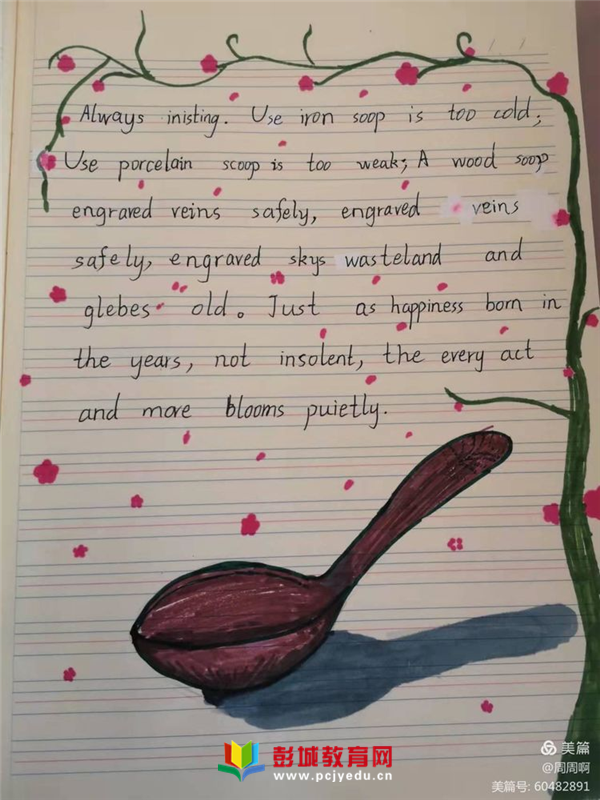 Always inisting. Use iron soop is too cold;
Use porcelain scoop is too weak; A wood soop
engraved veins safely, engraved veins
safely, engraved skys wasteland and
glebes old。Just as happiness born in
the years, not insolent, the every act
and more blooms puietly.
彭城教育网
www.pcjyedu.cn
美篇
@周周啊
美篇号: 60482891